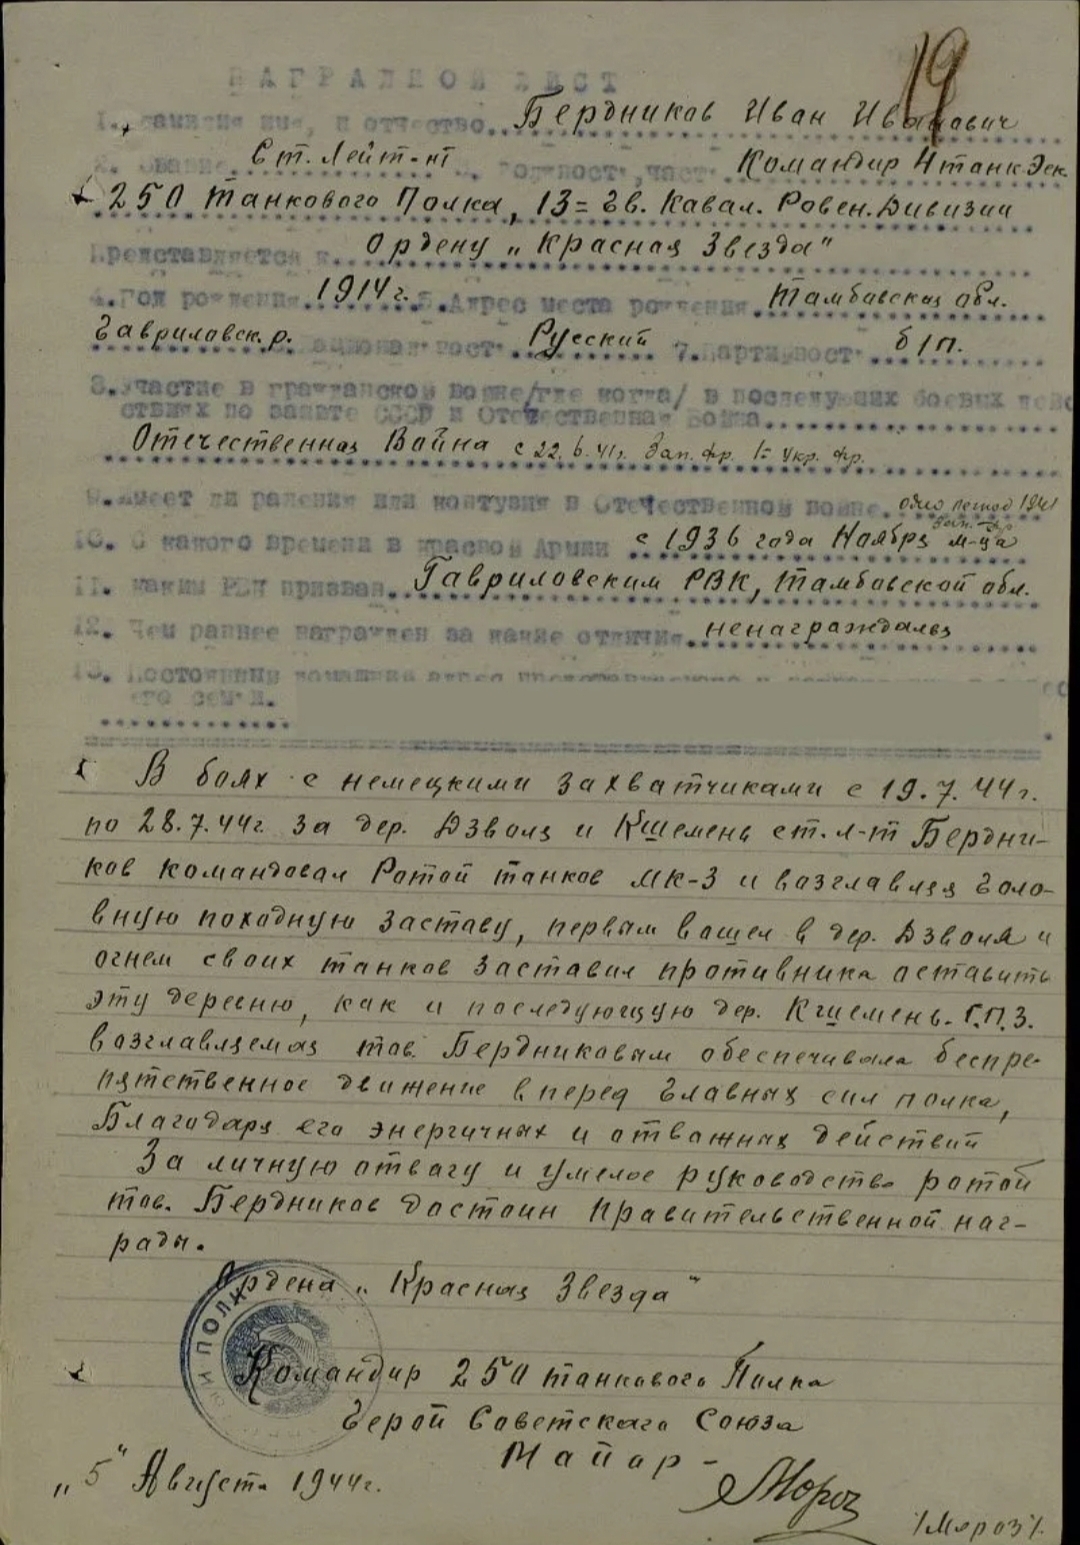 19
НАГРАДНОЙ ЛИСТ
1. Фамилия имя, и отчество.. Бердников Иван Иванович
2. Звание Ст. Лейт-нт 3. Должность, часть Командир Iтанк Эск.
250 Танкового Полка, 13= Гв. Кавал. Ровен. Дивизии
Представляется к Ордену „Красная Звезда"
4. Год рождения 1914г. 5. Адрес места рождения Тамбовская обл.
Гавриловск. р. 6. Национальность Русский 7. Партийность б/п.
8. Участие в гражданской войне/где когда/ в последующих боевых дейс
ствиях по защите СССР и Отечественная Война
Отечественная Война с 22.6.41г. Зап. фр. 1= Укр. фр.
9. Имеет ли ранения или контузия в Отечественной войне. 1941
10. С какого времени в красной Армии с 1936 года Ноября м-ца
11. каким РВК призван Гавриловским РВК, Тамбовской обл.
12. Чем раннее награжден за какие отличия ненаграждался
13. Постоянный домашний адрес
его семьи.
В боях с немецкими захватчиками с 19.7.44г.
по 28.7.44г. за дер. Дзволя и Кшемень ст. л-т Бердни-
ков командовал Ротой танков МК-3 и возглавляя Голо-
вную походную заставу, первым вошел в дер. Дзволя и
огнем своих танков заставил противника оставить
эту деревню, как и последующую дер. Кшемень. Г.П.З.
возглавляемая тов. Бердниковым обеспечивала беспре-
пятственное движение вперед Главных сил полка,
Благодаря его энергичных и отважных действий
За личную отвагу и умелое руководство ротой
тов. Бердников достоин Правительственной наг-
рады.
Ордена „Красная Звезда"
Командир 250 танкового Полка
Герой Советского Союза
Майор -
„5" Августа 1944г.
/Мороз/.